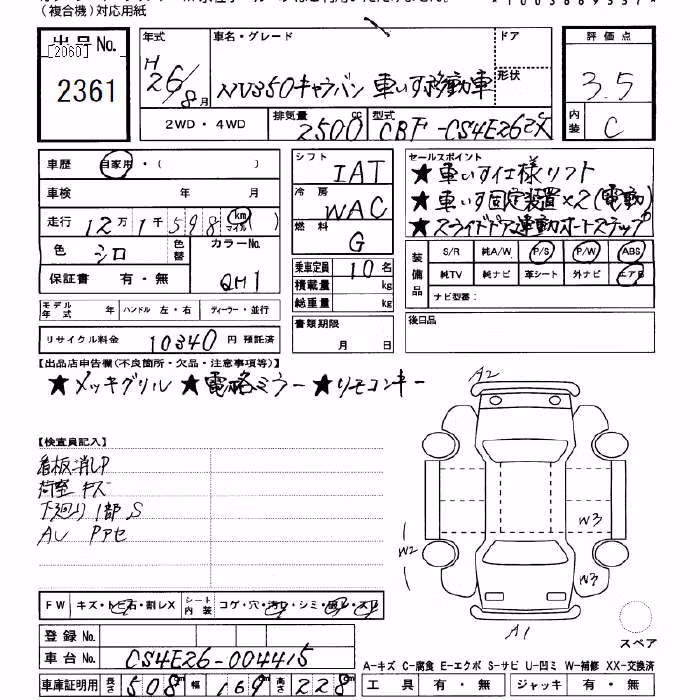 (複合機)対応用紙
出品No.
[2060]
2361
年式 車名・グレード ドア 形状
H 26/8月 NV350キャラバン 車いす移動車
2WD・4WD 排気量 2500 cc 型式 CBF-CS4E26
評価点
3.5
内装 C
車歴 自家用・( )
車検 年 月
走行 12万1千598 km マイル
色 シロ 色替 カラーNo. QM1
保証書 有・無
モデル年式 年 ハンドル 左・右 ディーラー・並行
リサイクル料金 10340 円 預託済
シフト IAT
冷房 WAC
燃料 G
乗車定員 10 名
積載量 kg
総重量 kg
書類期限 月 日
セールスポイント
★車いす仕様リフト
★車いす固定装置×2(電動)
★スライドドア連動オートステップ
装備品 S/R 純A/W P/S P/W ABS
純TV 純ナビ 革シート 外ナビ エアB
ナビ型番:
後日品
【出品店申告欄(不良箇所・欠品・注意事項等)】
★メッキグリル ★電格ミラー ★リモコンキー
【検査員記入】
看板消しP
荷室 キズ
下廻り 1部 S
AU Pアセ
A2
W3
W2
W3
A1
スペア
FW キズ・トビ石・割レX シート内装 コゲ・穴・汚レ・シミ・破レ・スレ
登録No.
車台No. CS4E26-004415
車庫証明用 長さ 508 幅 169 高さ 228
A-キズ C-腐食 E-エクボ S-サビ U-凹ミ W-補修 XX-交換済
工具 有・無 ジャッキ 有・無